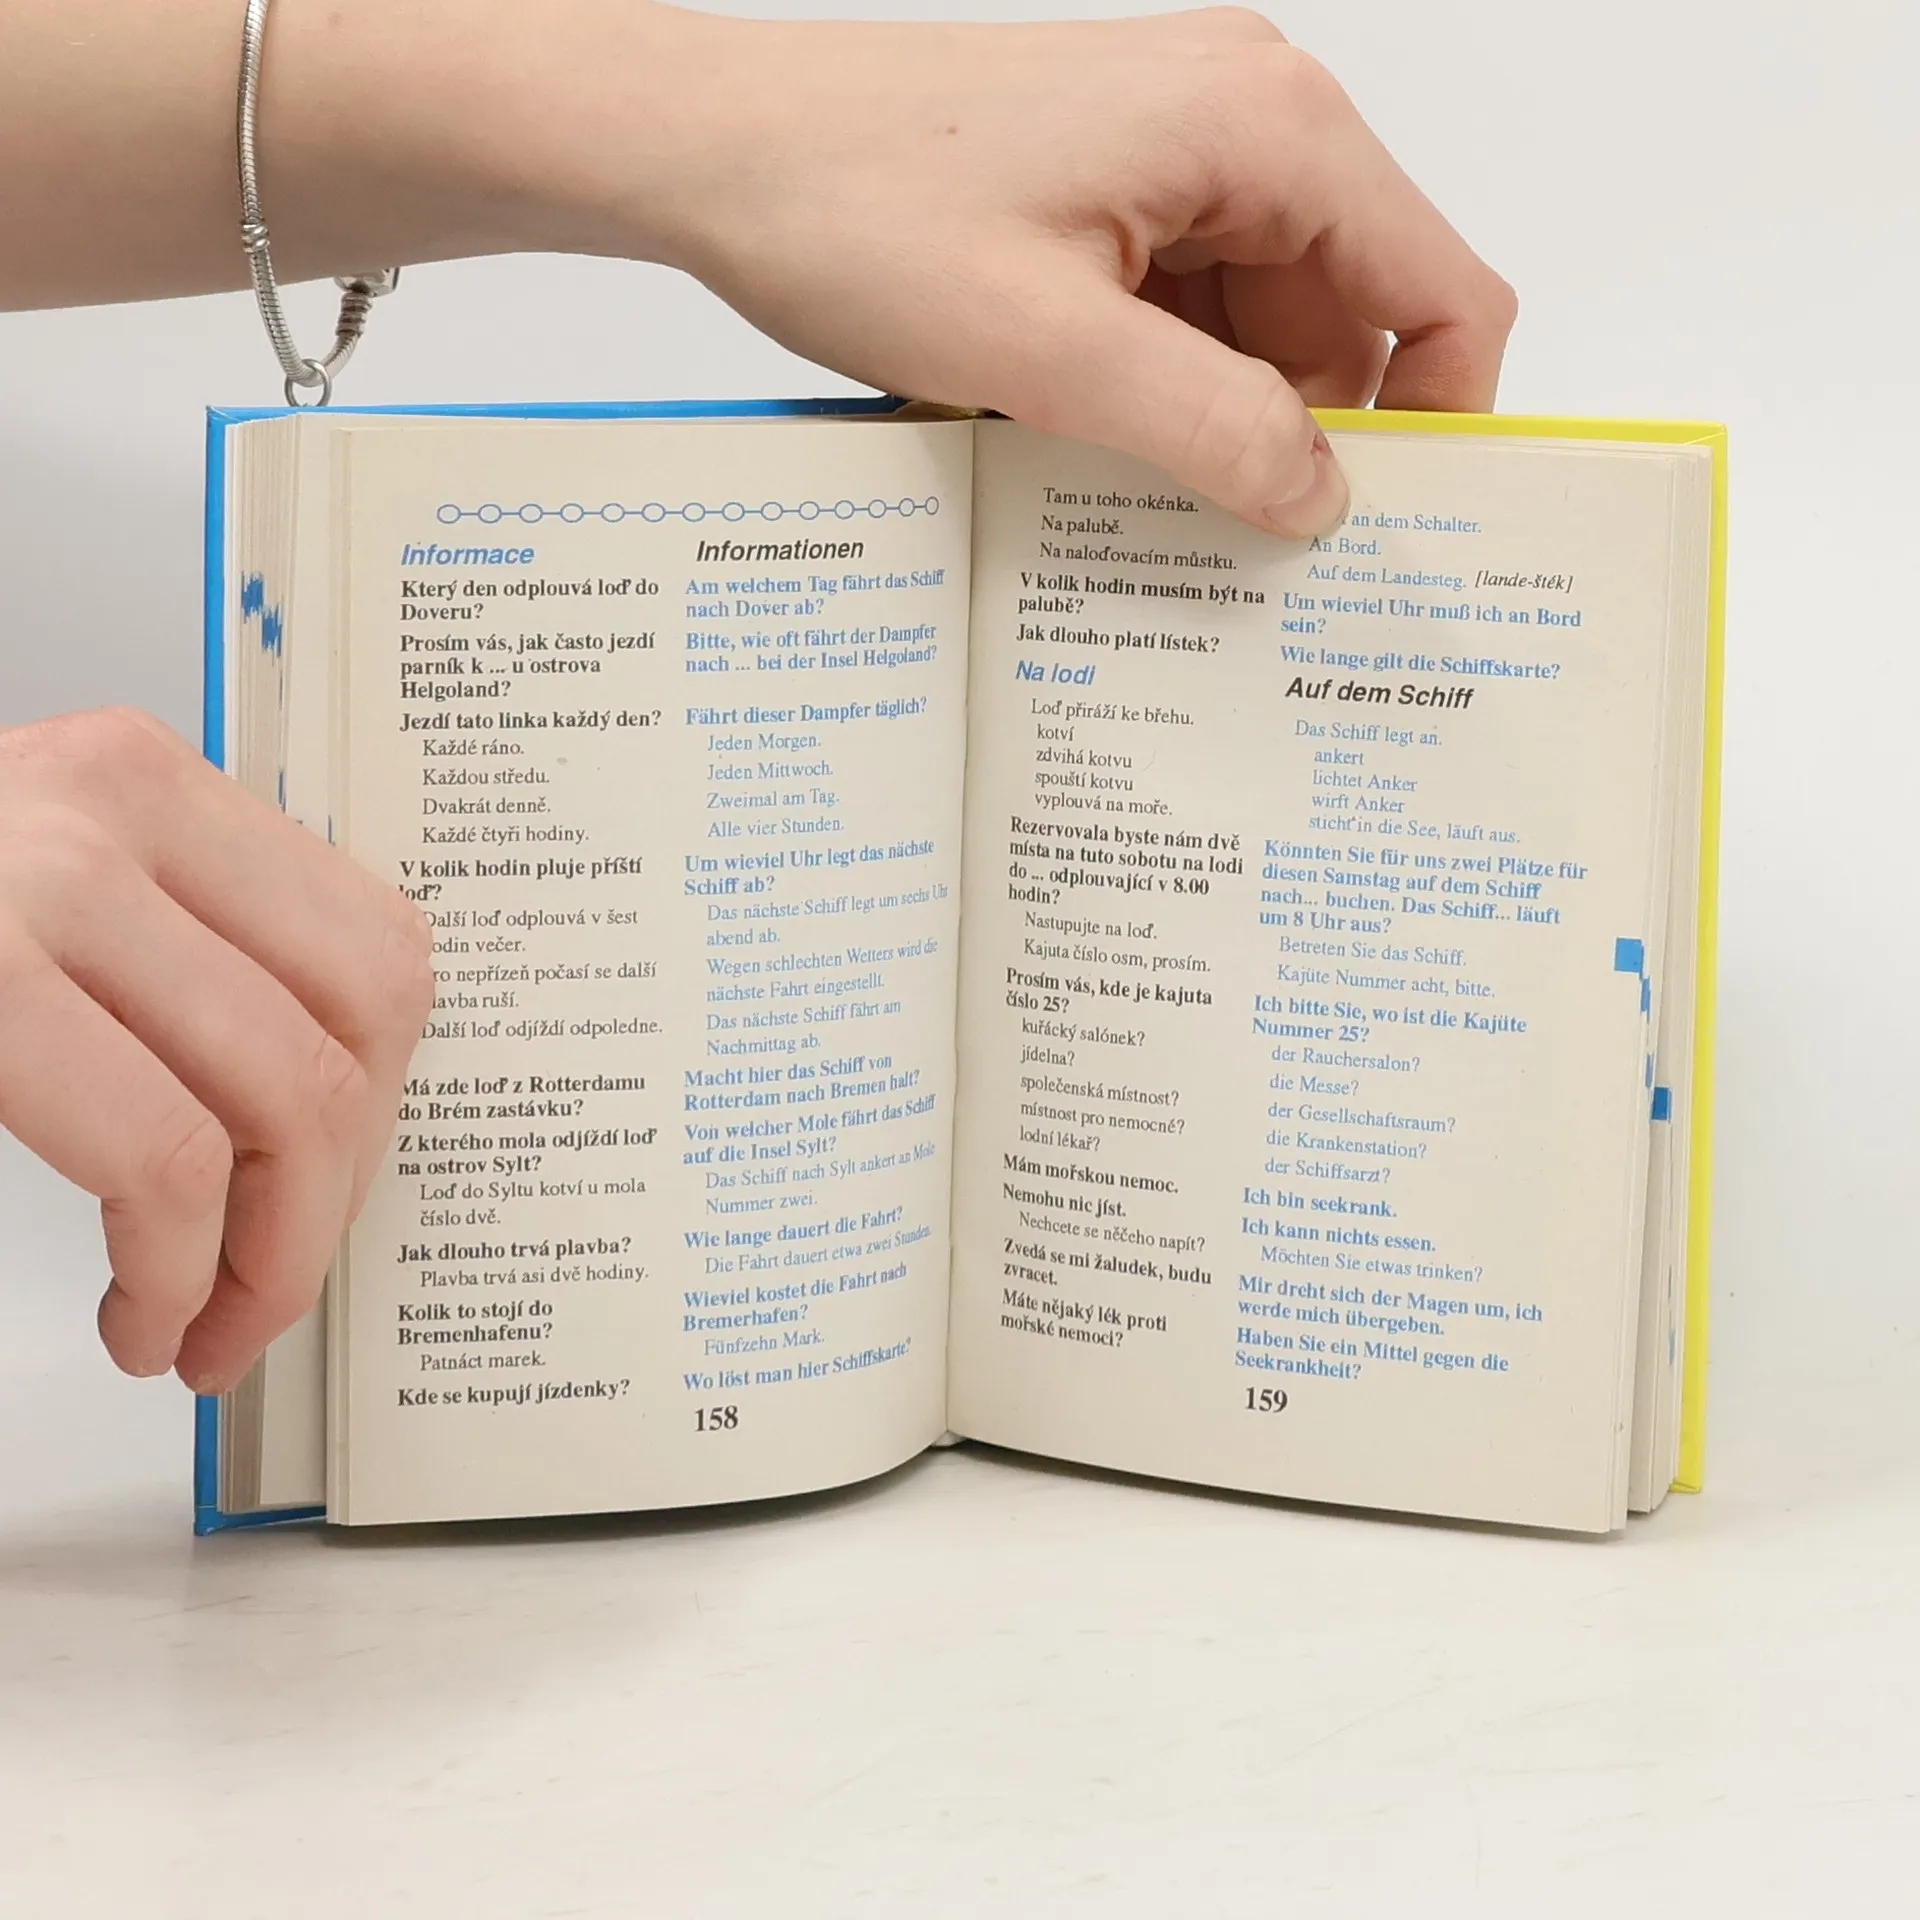 Informace
Který den odplouvá loď do
Doveru?
Prosím vás, jak často jezdí
parník k ... u ostrova
Helgoland?
Jezdí tato linka každý den?
Každé ráno.
Každou středu.
Dvakrát denně.
Každé čtyři hodiny.
V kolik hodin pluje příští
loď?
Další loď odplouvá v šest
odin večer.
ro nepřízeň počasí se další
lavba ruší.
Další loď odjíždí odpoledne.
Má zde loď z Rotterdamu
do Brém zastávku?
Z kterého mola odjíždí loď
na ostrov Sylt?
Loď do Syltu kotví u mola
číslo dvě.
Jak dlouho trvá plavba?
Plavba trvá asi dvě hodiny.
Kolik to stojí do
Bremenhafenu?
Patnáct marek.
Kde se kupují jízdenky?
Informationen
Am welchem Tag fährt das Schiff
nach Dover ab?
Bitte, wie oft fährt der Dampfer
nach ... bei der Insel Helgoland?
Fährt dieser Dampfer täglich?
Jeden Morgen.
Jeden Mittwoch.
Zweimal am Tag.
Alle vier Stunden.
Um wieviel Uhr legt das nächste
Schiff ab?
Das nächste Schiff legt um sechs Uhr
abend ab.
Wegen schlechten Wetters wird die
nächste Fahrt eingestellt.
Das nächste Schiff fährt am
Nachmittag ab.
Macht hier das Schiff von
Rotterdam nach Bremen halt?
Von welcher Mole fährt das Schiff
auf die Insel Sylt?
Das Schiff nach Sylt ankert an Mole
Nummer zwei.
Wie lange dauert die Fahrt?
Die Fahrt dauert etwa zwei Stunden.
Wieviel kostet die Fahrt nach
Bremerhafen?
Fünfzehn Mark.
Wo löst man hier Schiffskarte?
158
Tam u toho okénka.
Na palubě.
Na naloďovacím můstku.
V kolik hodin musím být na
palubě?
Jak dlouho platí lístek?
Na lodi
Loď přiráží ke břehu.
kotví
zdvihá kotvu
spouští kotvu
vyplouvá na moře.
Rezervovala byste nám dvě
místa na tuto sobotu na lodi
do ... odplouvající v 8.00
hodin?
Nastupujte na loď.
Kajuta číslo osm, prosím.
Prosím vás, kde je kajuta
číslo 25?
kuřácký salónek?
jídelna?
společenská místnost?
místnost pro nemocné?
lodní lékař?
Mám mořskou nemoc.
Nemohu nic jíst.
Nechcete se něčeho napít?
Zvedá se mi žaludek, budu
zvracet.
Máte nějaký lék proti
mořské nemoci?
an dem Schalter.
An Bord.
Auf dem Landesteg. [lande-šték]
Um wieviel Uhr muß ich an Bord
sein?
Wie lange gilt die Schiffskarte?
Auf dem Schiff
Das Schiff legt an.
ankert
lichtet Anker
wirft Anker
sticht in die See, läuft aus.
Könnten Sie für uns zwei Plätze für
diesen Samstag auf dem Schiff
nach... buchen. Das Schiff... läuft
um 8 Uhr aus?
Betreten Sie das Schiff.
Kajüte Nummer acht, bitte.
Ich bitte Sie, wo ist die Kajüte
Nummer 25?
der Rauchersalon?
die Messe?
der Gesellschaftsraum?
die Krankenstation?
der Schiffsarzt?
Ich bin seekrank.
Ich kann nichts essen.
Möchten Sie etwas trinken?
Mir dreht sich der Magen um, ich
werde mich übergeben.
Haben Sie ein Mittel gegen die
Seekrankheit?
159